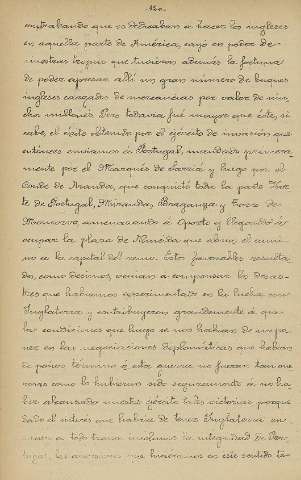 contrabando que se dedicaban a hacer los ingleses
en aquella parte de América, cayó en poder de
nuestras tropas que tuvieron además la fortuna
de poder apresar allí un gran número de buques
ingleses cargados de mercancías por valor de mu-
chos millones. Pero todavía fué mayor que éste, si
cabe, el éxito obtenido por el ejército de invasión que
entónces enviamos a Portugal, mandado primera-
mente por el Marqués de Sarriá y luego por el
Conde de Aranda, que conquistó toda la parte Nor-
te de Portugal, Miranda, Braganza y Torre de
Moncorvo, amenazando a Oporto y llegando a
ocupar la plaza de Almeida que abría el cami-
no a la capital del reino. Estos favorables resulta-
dos, como decimos, venían a compensar los desas-
tres que habíamos experimentado en la lucha con
Inglaterra y contribuyeron grandemente a que
las condiciones que luego se nos habían de impo-
ner en las negociaciones diplomáticas que habían
de poner término a esta guerra no fueran tan one-
rosas como lo hubieran sido seguramente a no ha-
ber alcanzado nuestro ejército tales victorias porque
dado el interés que había de tener Inglaterra en
a todo trance la integridad de Por-
tugal, las que hiciéramos en este sentido